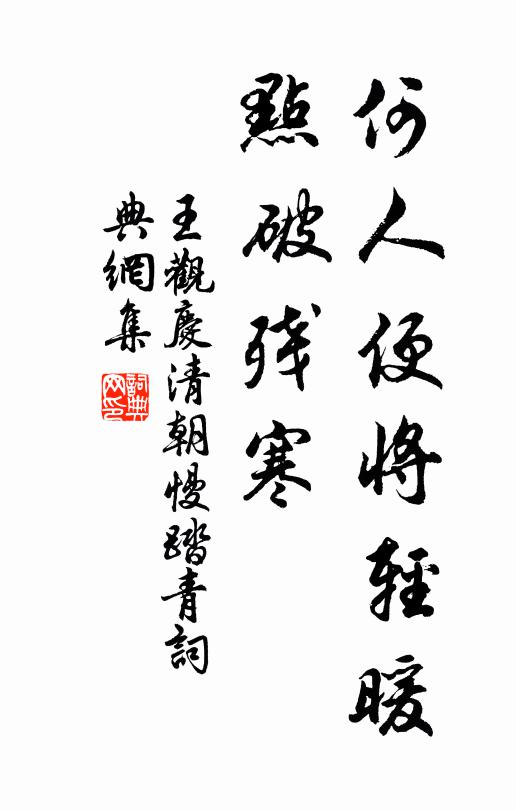 何人便將輕暖
點破残寒
王觀慶清朝慢踏青詞
典網集
詞典
网印